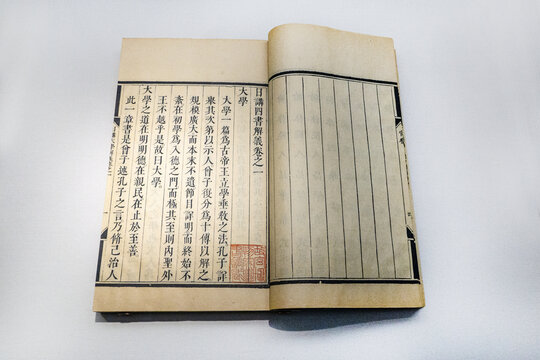 日講四書解義卷之一
大學
大學一篇為古帝王立學垂敎之法孔子詳
舉其次第以示人曾子復分為十傳以解之
規模廣大而本末不遺節目詳明而終始不
紊在初學為入德之門而極其至則內聖外
王不越乎是故曰大學
大學之道在明明德在親民在止於至善
此一章書是曾子述孔子之言乃脩己治人